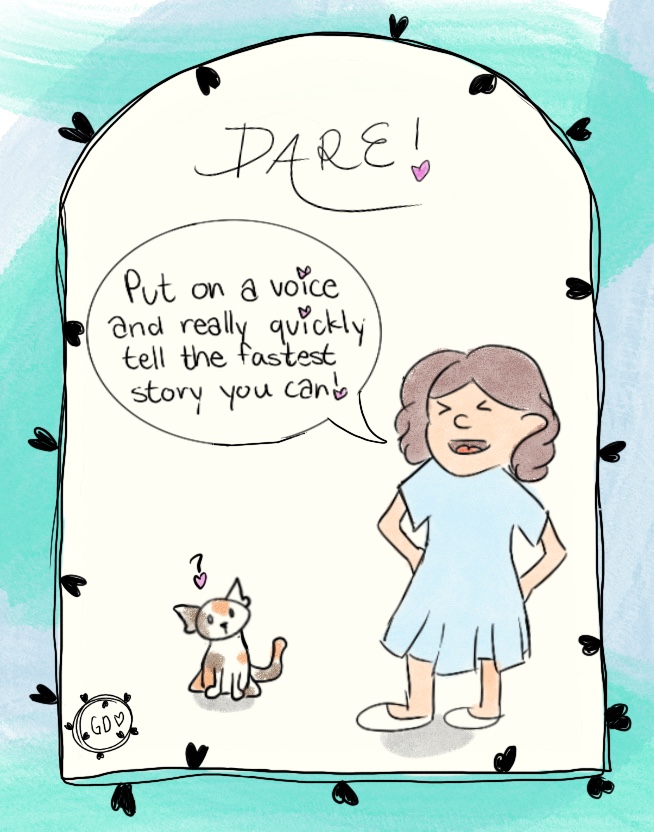 DARE!
Put on a voice
and really quickly
tell the fastest
story you can!
?
GD♡